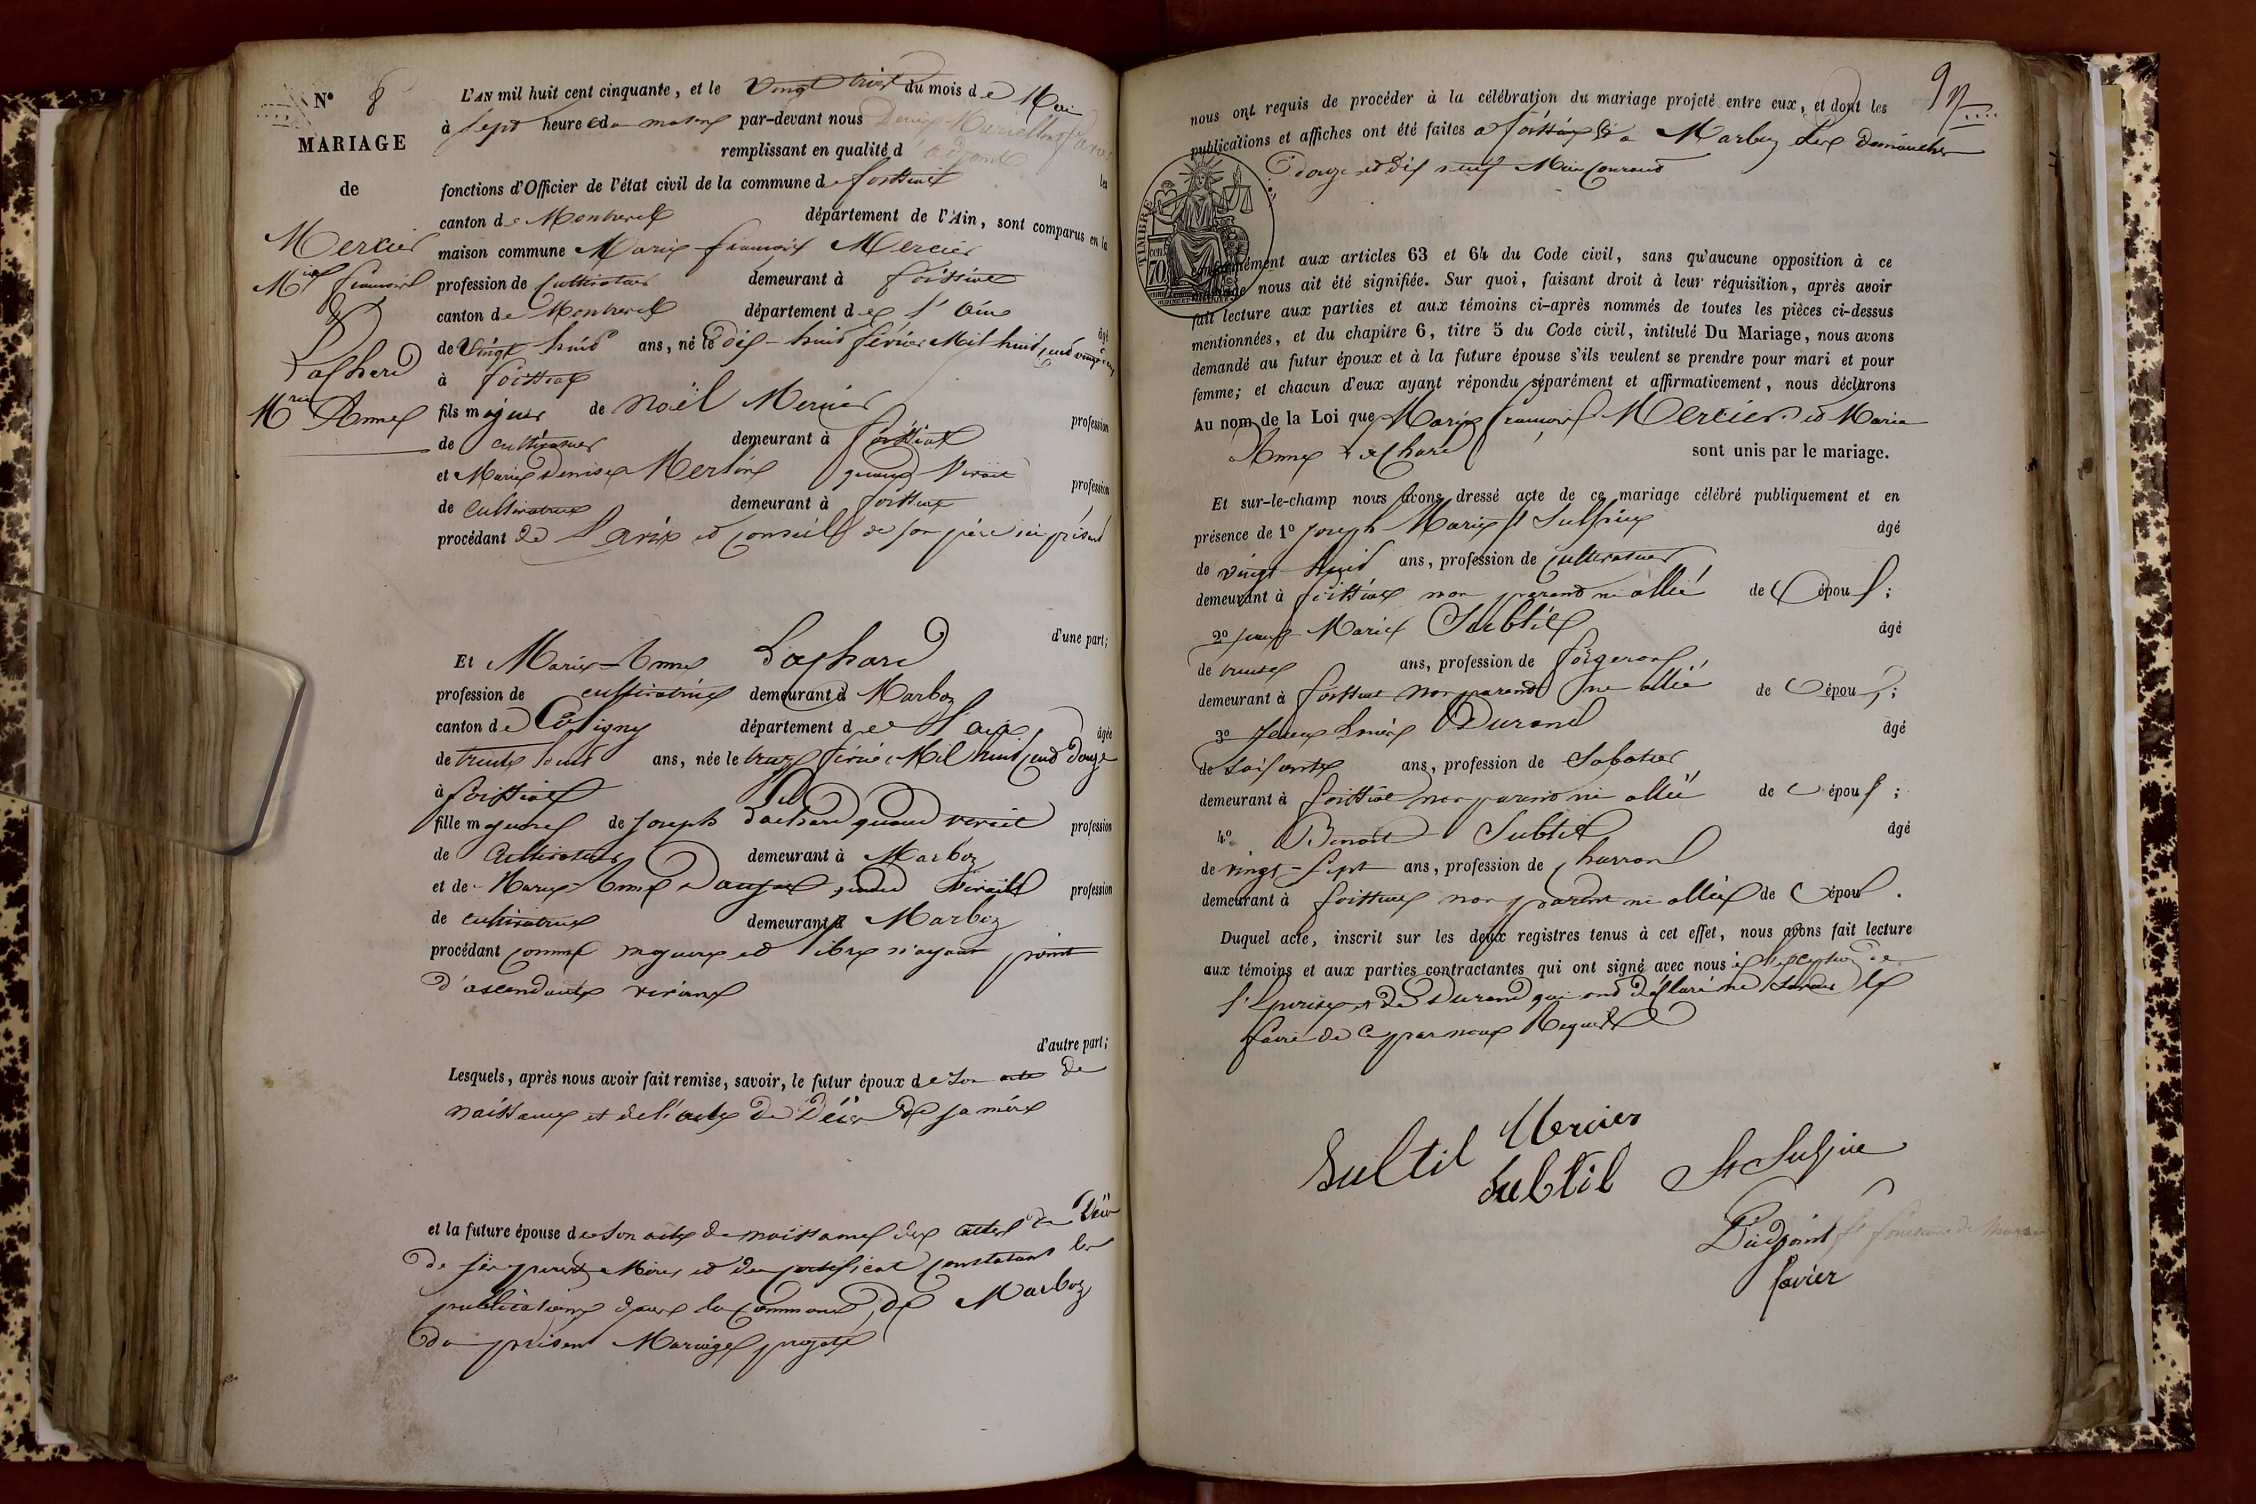 N° 8
MARIAGE
de
Mercier
Mie françois
&
Lachard
Mrie Anne
L'AN mil huit cent cinquante, et le vingt trois du mois de Mai
à sept heure du matin par-devant nous
remplissant en qualité d'adjoint les
fonctions d'Officier de l'état civil de la commune de foissiat
canton de Montrevel département de l'Ain, sont comparus en la
maison commune Marie françois Mercier
profession de cultivateur demeurant à foissiat
canton de Montrevel département de l'ain âgé
de vingt huit ans, né le dix-huit février Mil huit cent vingt
à foissiat
fils majeur de Noël Mercier profession
de cultivateur demeurant à foissiat
et Marie Denise quand vivait profession
de cultivatrice demeurant à foissiat
procédant de l'avis et conseils de son père ici présent
d'une part;
Et Marie-Anne Lachard
profession de cultivatrice demeurant à Marboz
canton de Coligny département de l'ain âgée
de trente huit ans, née le février Mil huit cent douze
à foissiat
fille majeure de Joseph Lachard quand vivait profession
de cultivateur demeurant à Marboz
et de Marie Anne quand vivait profession
de cultivatrice demeurant à Marboz
procédant comme majeure et libre n'ayant point
d'ascendants vivants
d'autre part;
Lesquels, après nous avoir fait remise, savoir, le futur époux de son acte de
naissance et de l'acte de Décès de sa mère
et la future épouse de son acte de naissance des actes de Décès
de ses père et Mère et du certificat constatant les
publications dans la commune de Marboz
du présent Mariage projeté
nous ont requis de procéder à la célébration du mariage projeté entre eux, et dont les
publications et affiches ont été faites a foissiat & a Marboz les Dimanches
douze et dix neuf Mai courant
TIMBRE
70
conformément aux articles 63 et 64 du Code civil, sans qu'aucune opposition à ce
mariage nous ait été signifiée. Sur quoi, faisant droit à leur réquisition, après avoir
fait lecture aux parties et aux témoins ci-après nommés de toutes les pièces ci-dessus
mentionnées, et du chapitre 6, titre 5 du Code civil, intitulé Du Mariage, nous avons
demandé au futur époux et à la future épouse s'ils veulent se prendre pour mari et pour
femme; et chacun d'eux ayant répondu séparément et affirmativement, nous déclarons
Au nom de la Loi que Marie françois Mercier et Marie
Anne Lachard sont unis par le mariage.
Et sur-le-champ nous avons dressé acte de ce mariage célébré publiquement et en
présence de 1° Joseph Marie St Sulpice âgé
de vingt huit ans, profession de cultivateur
demeurant à foissiat non parent ni allié de l'époux;
2° Marie Subtil âgé
de trente ans, profession de forgeron
demeurant à foissiat non parent ni allié de l'époux;
3° Durand âgé
de soixante ans, profession de Sabotier
demeurant à foissiat non parent ni allié de l'époux;
4° Benoit Subtil âgé
de vingt-sept ans, profession de charron
demeurant à foissiat non parent ni allié de l'époux.
Duquel acte, inscrit sur les deux registres tenus à cet effet, nous avons fait lecture
aux témoins et aux parties contractantes qui ont signé avec nous à l'exception de
l'épouse et de Durand qui ont déclaré ne savoir le
faire de ce par nous Requis
Mercier
Subtil
Subtil
St Sulpice
L'adjoint